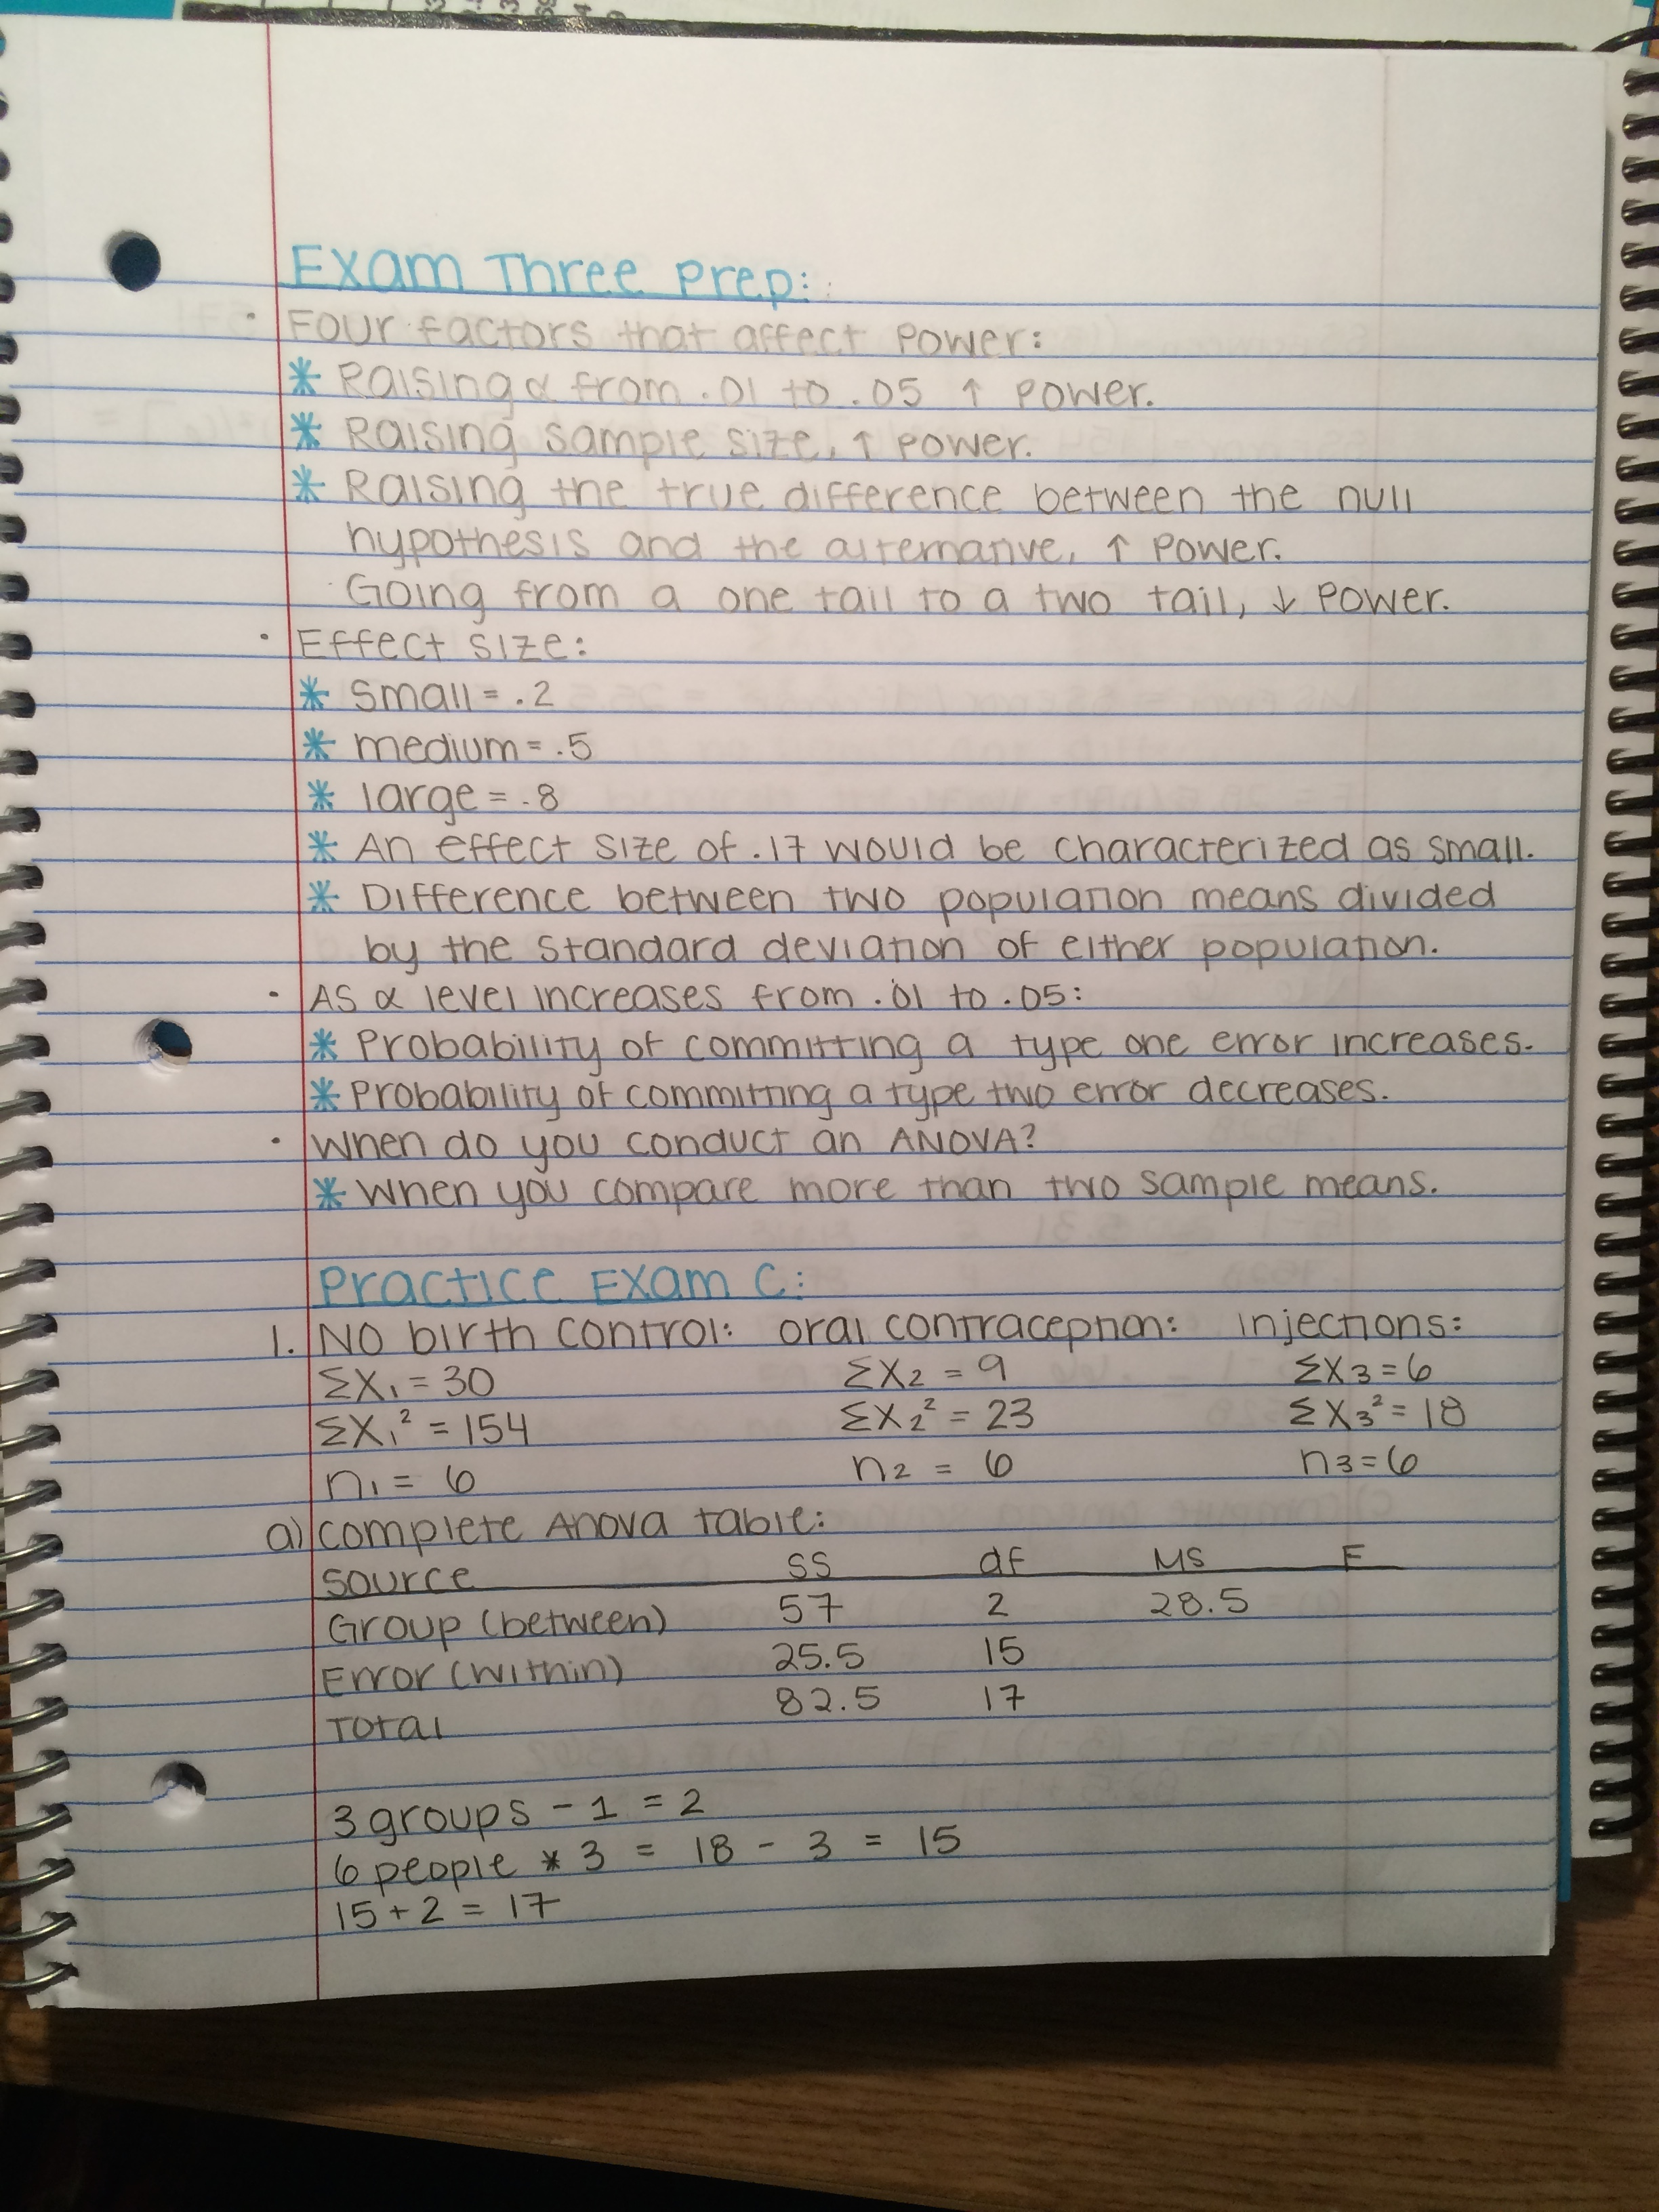 Exam Three Prep:
· Four factors that affect power:
* Raising α from .01 to .05 ↑ power.
* Raising sample size, ↑ power.
* Raising the true difference between the null
hypothesis and the alternative, ↑ power.
Going from a one tail to a two tail, ↓ power.
· Effect size:
* small = .2
* medium = .5
* large = .8
* An effect size of .17 would be characterized as small.
* Difference between two population means divided
by the standard deviation of either population.
· As α level increases from .01 to .05:
* Probability of committing a type one error increases.
* Probability of committing a type two error decreases.
· When do you conduct an ANOVA?
* When you compare more than two sample means.
Practice Exam C:
1. No birth control: oral contraception: injections:
ΣX₁ = 30 ΣX₂ = 9 ΣX₃ = 6
ΣX₁² = 154 ΣX₂² = 23 ΣX₃² = 18
n₁ = 6 n₂ = 6 n₃ = 6
a) complete Anova table:
source SS df MS F
Group (between) 57 2 28.5
Error (within) 25.5 15
Total 82.5 17
3 groups - 1 = 2
6 people * 3 = 18 - 3 = 15
15 + 2 = 17